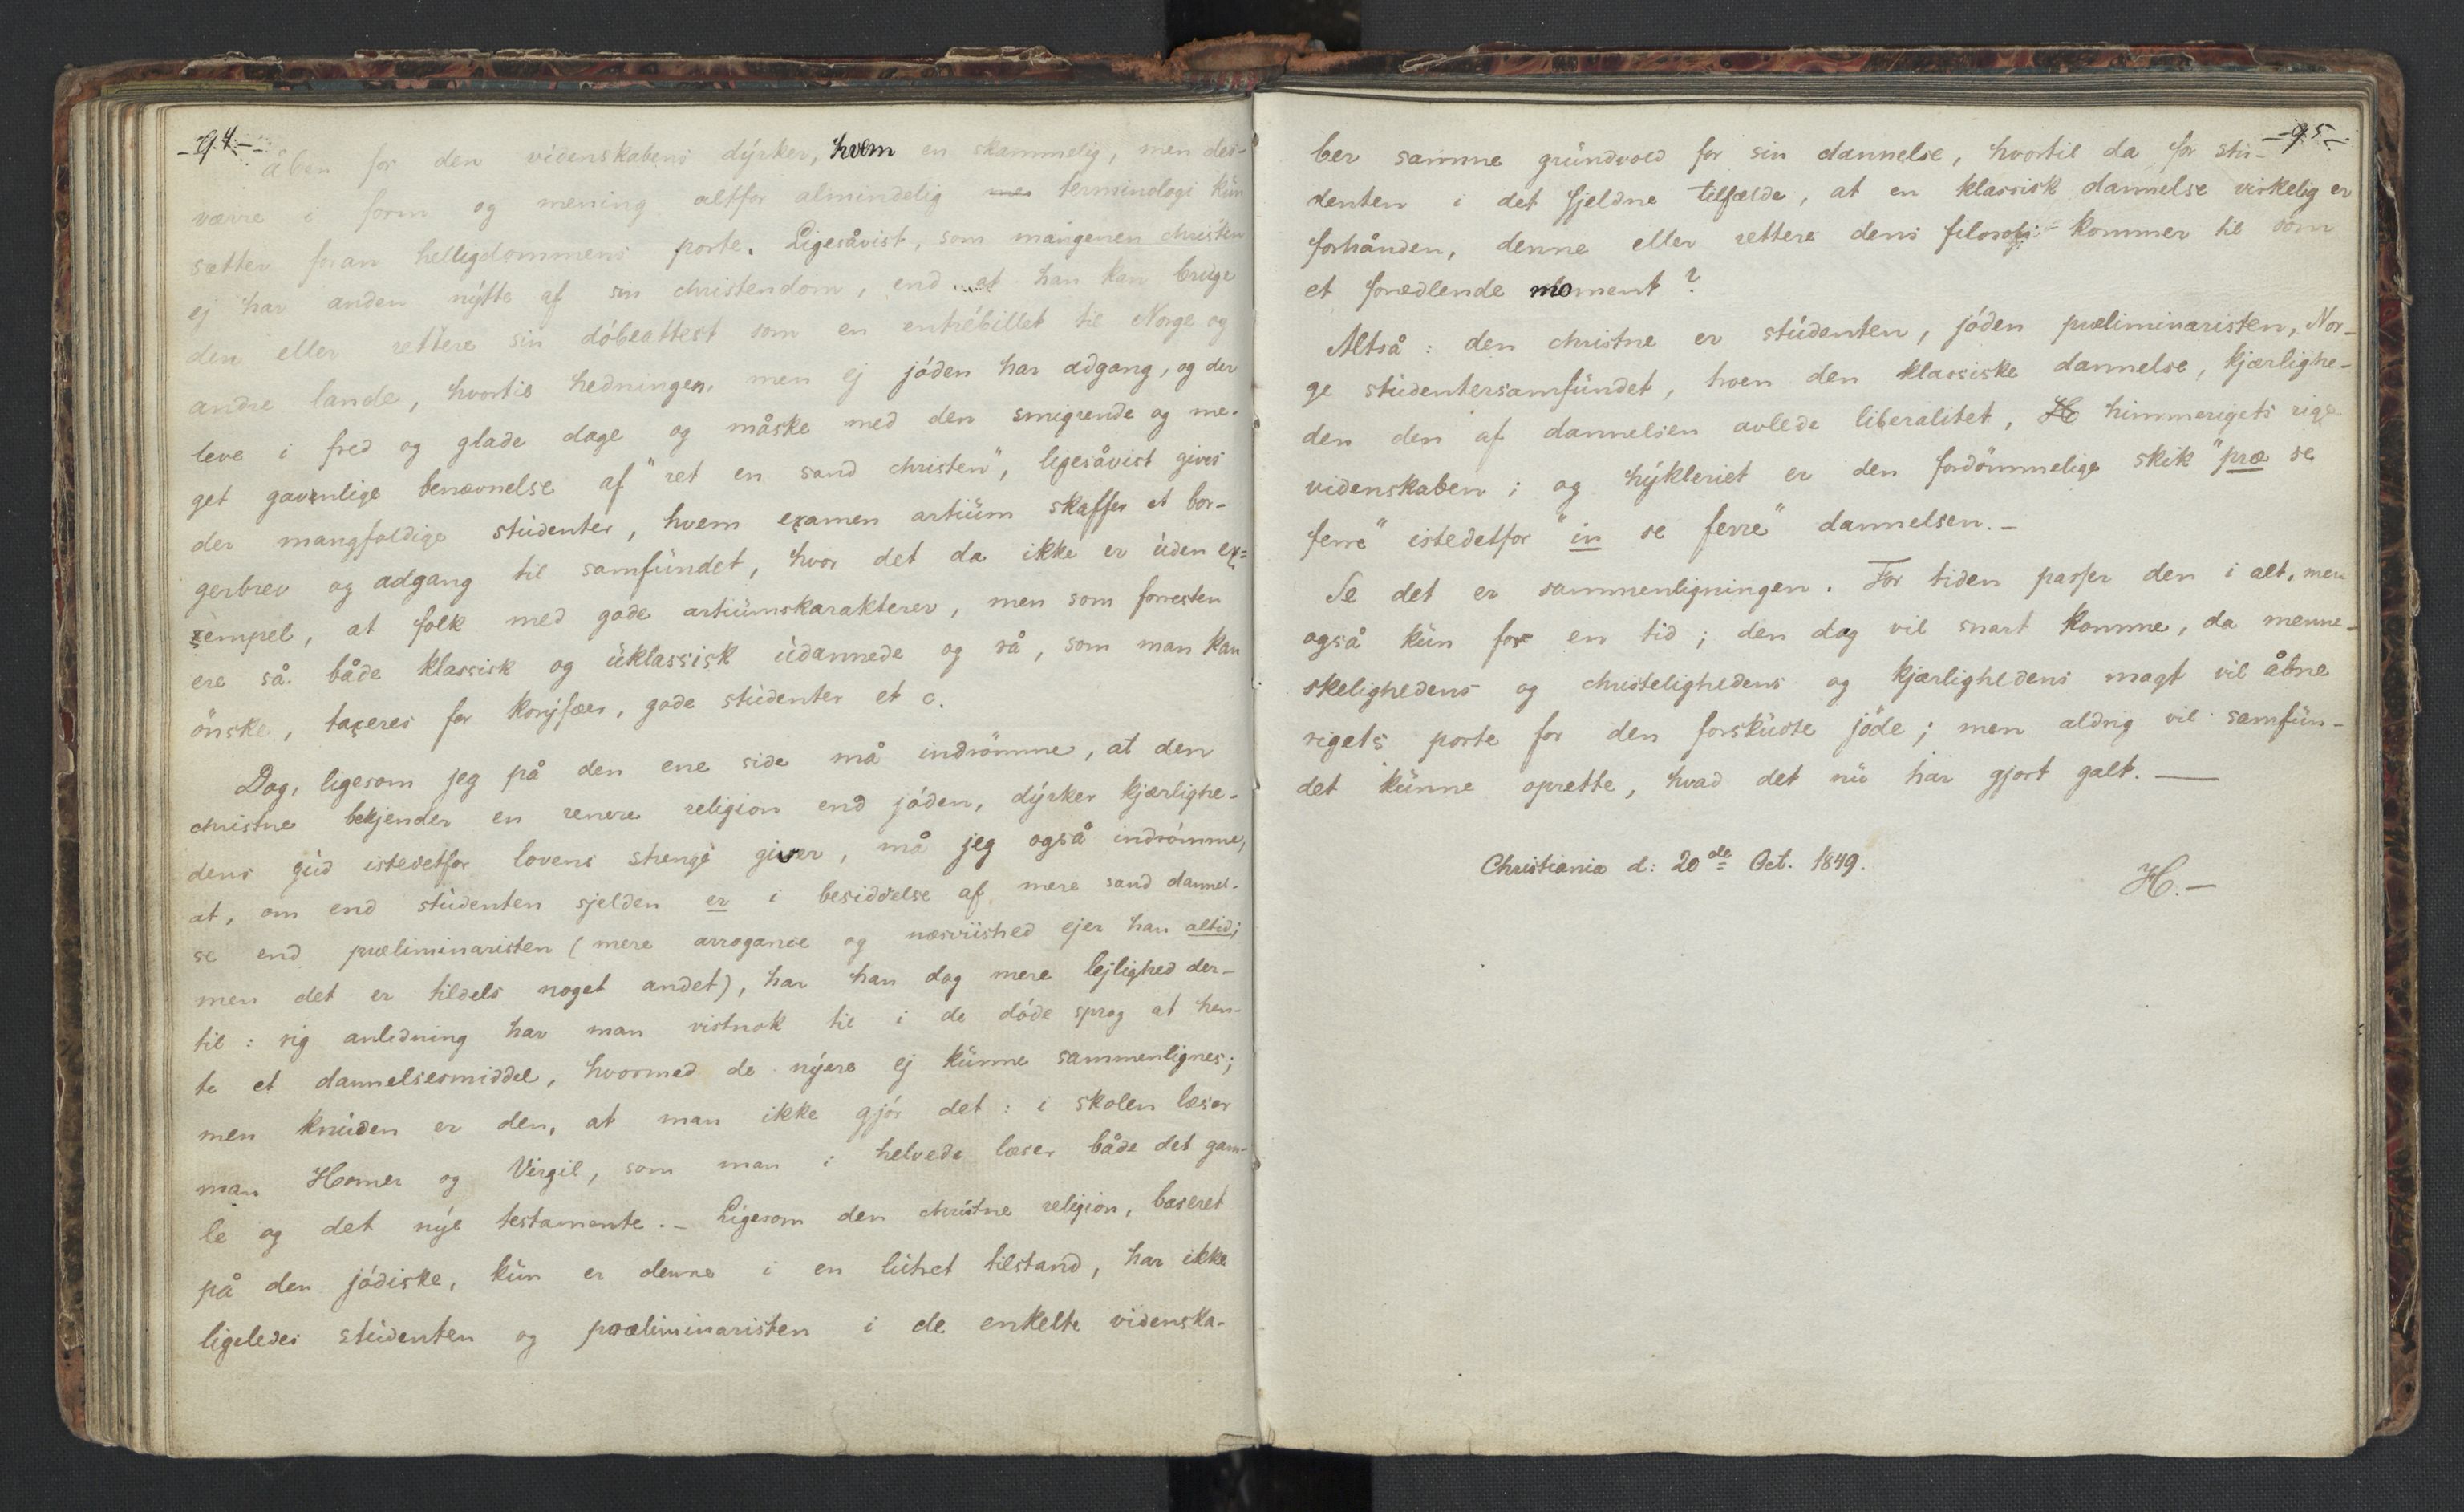 -94-
åben for den videnskabens dýrker, hvem en skammelig, men des-
værre i form og mening altfor almindelig terminologi kün
sætter foran helligdommens porte. Ligesåvist, som mangenen christen
ej har anden nýtte af sin christendom, end at han kan brüge
den eller rettere sin dóbeattest som en entrébillet til Norge og
andre lande, hvortil hedningen, men ej jóden har adgang, og der
leve i fred og glade dage og måske med den smigrende og me-
get gavnlige benævnelse af "ret en sand christen", ligesåvist gives
der mangfoldige stüdenter, hvem examen artiüm skaffer et bor-
gerbrev og adgang til samfündet, hvor det da ikke er üden ex=
sempel, at folk med gode artiümskarakterer, men som forresten
ere så både klassisk og üklassisk üdannede og rå, som man kan
önske, taxeres for korýfæer, gode stüdenter et c.
Dog, ligesom jeg på den ene side må indrömme, at den
christne bekjender en renere religion end jóden, dýrker kjærlighe-
dens güd istedetfor lovens strenge giver, må jeg også indrómme,
at, om end stüdenten sjelden er i besiddelse af mere sand dannel-
se end præliminaristen (mere arrogance og næsviished ejer han altid;
men det er tildels noget andet), har han dog mere lejlighed der-
til: rig anledning har man vistnok til i de dóde sprog at hen-
te et dannelsesmiddel, hvormed de nýere ej künne sammenlignes;
men knüden er den, at man ikke gjór det: i skolen læser
man Homer og Virgil, som man i helvede læser både det gam-
le og det nýe testamente. - Ligesom den christne religion, baseret
på den jódiske, kün er denne i en lütret tilstand, har ikke
ligeledes stüdenten og præliminaristen i de enkelte videnska-
-95-
ber samme gründvold for sin dannelse, hvortil da for stü-
denten i det sjeldne tilfælde, at en klassisk dannelse virkelig er
forhånden, denne eller rettere dens filosofi kommer til som
et forædlende moment?
Altså: den christne er stüdenten, jóden præliminaristen, Nor-
ge stüdentersamfündet, troen den klassiske dannelse, kjærlighe-
den den af dannelsen avlede liberalitet, H himmerigets rige
videnskaben; og hýkleriet er den fordömmelige skik "præ se
ferre" istedetfor "in se ferre" dannelsen. -
Se det er sammenligningen. For tiden passer den i alt, men
også kün for en tid; den dag vil snart komme, da menne-
skelighedens og christelighedens og kjærlighedens magt vil åbne
rigets porte for den forsküdte jöde; men aldrig vil samfün-
det künne oprette, hvad det nü har gjort galt. —
Christiania d: 20de Oct. 1849.
H. -